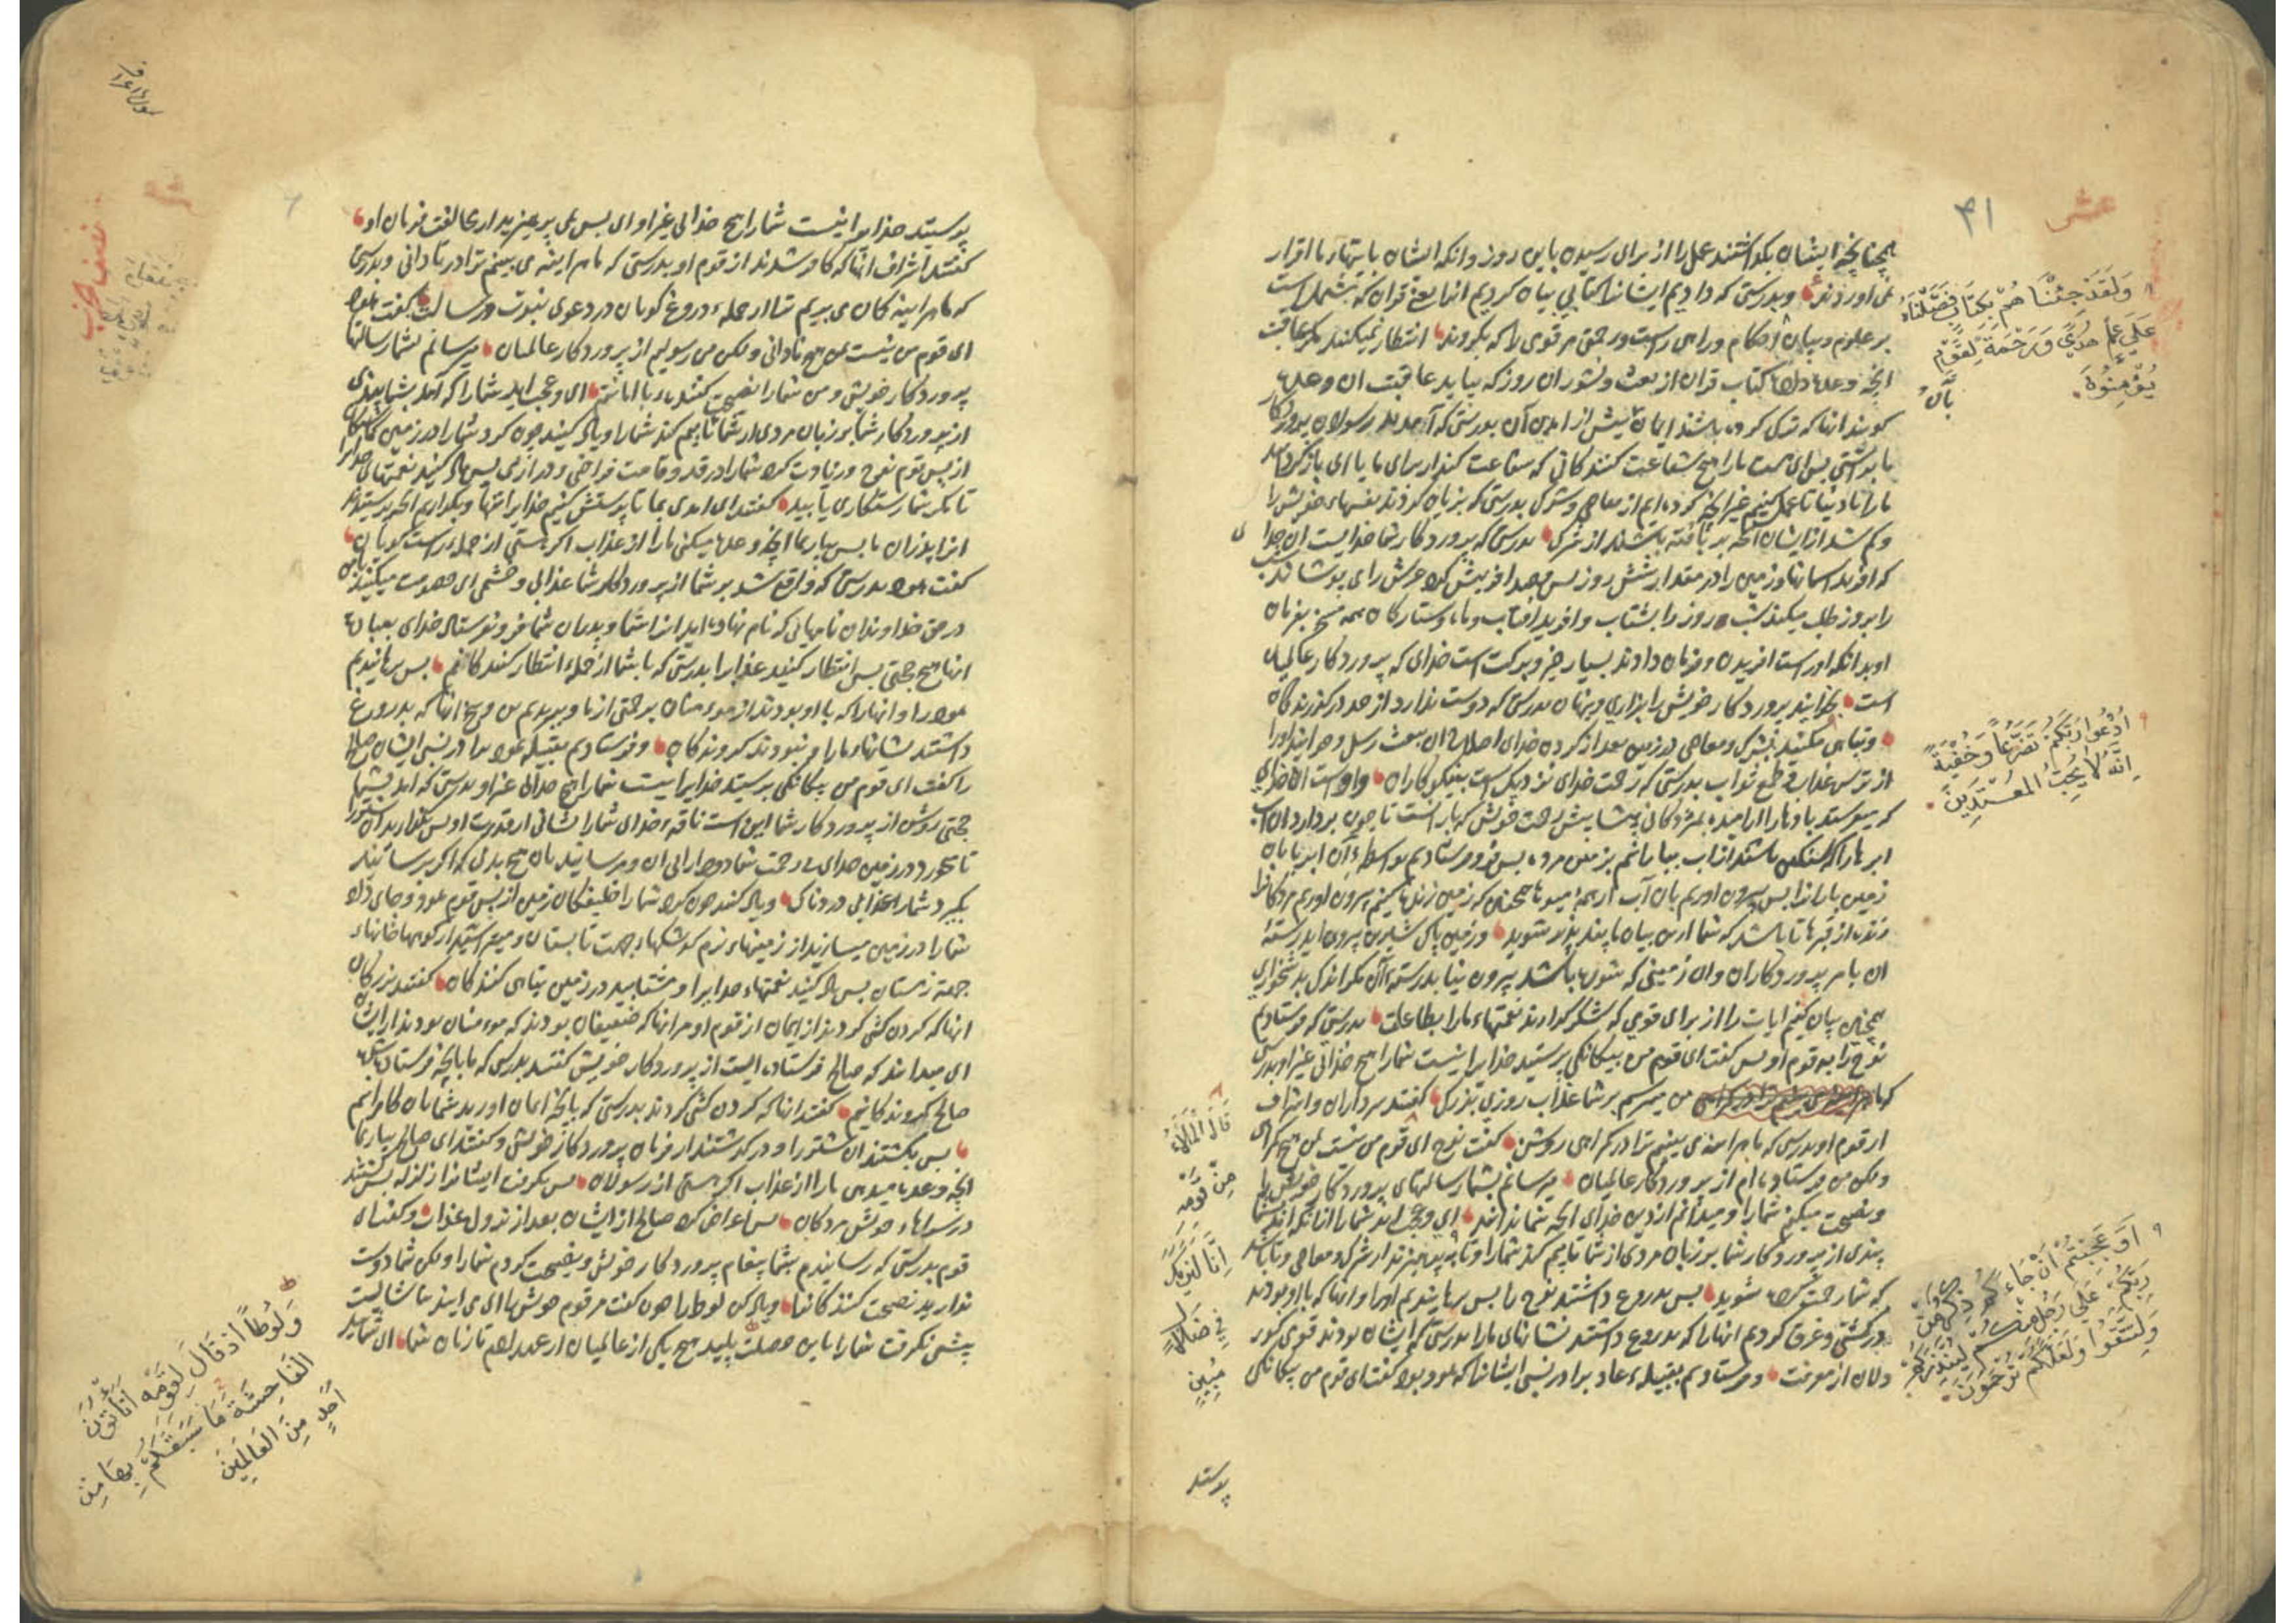 ۴۱
عشر
همچنانچه ایشان بگذاشتند عمل را از برای رسیدن باین روز و انکه ایشان بایتهای ما اقرار
نمی اوردند و بدرستی که دادیم ایشانرا کتابی بیان کردیم انرا یعنی قران که مشتمل است
بر علوم و بیان احکام و راهی راست و رحمتی مر قومی را که بکروند انتظار نمیکنند مکر عاقبت
انچه وعده داده کتاب قران از بعث و نشور ان روز که بیاید عاقبت ان وعده
کویند انها که ترک کرده باشند ایمان پیش از امدن آن بدرستی که آمدند رسولان پروردکار
ما براستی پس ای هست ما را هیچ شفاعت کنندکانی که شفاعت کنند از برای ما یا ای باز کردانند
ما را تا دنیا تا عمل کنیم غیر انچه کرده ایم از معاصی و شرک بدرستی که بزیان کردند نفسهای خویش را
و کم شد از ایشان انچه بر بافته باشند از شرک بدرستی که پروردکار شما خدایست ان خدا
که افرید اسمانها و زمین را در مقدار شش روز پس قصد افرینش کرد عرش را می پوشاند شب
را بروز طلب میکند شب روز را بشتاب و افرید افتاب و ماه و ستارکان همه مسخر بفرمان
او بدانکه اوراست افریدن و فرمان دادن بسیار خیر و برکت است خدای که پروردکار عالمیان
است بخوانید پروردکار خویش را بزاری و پنهان بدرستی که دوست ندارد از حد درکذرندکان
و تباهی مکنید بشرک و معاصی در زمین بعد از کردن خدای اصلاح ان ببعث رسل و خوانید اورا
از ترس عذاب و طمع ثواب بدرستی که رحمت خدای نزدیک است بنیکوکاران و اوست ان خدای
که میفرستد بادها را
ابرها را که سنکین باشند از اب
زمین باران را پس بیرون اوریم بان آب از همه میوها همچنین که زمین زنده میکنیم بیرون اوریم مردکانرا
زنده از قبرها تا باشد که شما ازین بیان ما پند پذیر شوید و زمین پاک شیرین بیرون اید رستهٔ
ان بامر پروردکاران و ان زمینی که شوره باشد بیرون نیاید رستهٔ آن مکر اندک بدشخواری
همچنین بیان کنیم ایات را از برای قومی که شکر کذارند نعمتهای ما را بطاعت بدرستی که فرستادیم
نوح را بقوم او پس کفت ای قوم من بیکانکی پرستید خدایرا نیست شما را هیچ خدائی غیر او بدرستی
که من میترسم بر شما عذاب روزی بزرک کفتند سرداران و اشراف
از قوم او بدرستی که ما هر اینه می بینیم ترا در کمراهی روشن کفت نوح ای قوم من نیست بمن هیچ کمراهی
و لکن من فرستاده ام از پروردکار عالمیان میرسانم بشما رسالتهای پروردکار خویش را
و نصیحت میکنم شما را و میدانم از دین خدای انچه شما ندانید ای و عجب اید شما را از انکه اید بشما
پندی از پروردکار شما بر زبان مردی از شما تا بیم کند شما را و تا بپرهیزند از شرک و معاصی و تا باشد
که شما رحمت کرده شوید پس بدروغ داشتند نوح را پس برهانیدیم او را و انها که با او بودند
در کشتی و غرق کردیم انها را که بدروغ داشتند نشانهای ما را بدرستی که ایشان بودند قومی کور
دلان از معرفت و فرستادیم بقبیلهٔ عاد برادر نسبی ایشانرا که هود بود کفت ای قوم من بیکانکی
وَلَقَدْ جِئْنَاهُمْ بِكِتَابٍ فَصَّلْنَاهُ
عَلَى عِلْمٍ هُدًى وَرَحْمَةً لِقَوْمٍ
يُؤْمِنُونَ
اُدْعُوا رَبَّكُمْ تَضَرُّعًا وَخُفْيَةً
اِنَّهُ لَا يُحِبُّ الْمُعْتَدِينَ
قَالَ الْمَلَأُ
مِنْ قَوْمِهِ
اِنَّا لَنَرَيكَ
فِي ضَلَالٍ
مُبِينٍ
اَوَ عَجِبْتُمْ اَنْ جَاءَكُمْ ذِكْرٌ مِنْ
رَبِّكُمْ عَلَى رَجُلٍ مِنْكُمْ لِيُنْذِرَكُمْ
وَلِتَتَّقُوا وَلَعَلَّكُمْ تُرْحَمُونَ
پرستید
سورة اعراف
نصف حزب
پرستید خدایرا نیست شما را هیچ خدائی غیر او ای پس نمی پرهیزید از مخالفت فرمان او
کفتند اشراف انها که کافر شدند از قوم او بدرستی که ما هر اینه می بینیم ترا در نادانی و بدرستی
که ما هر اینه کمان می بریم ترا از جملهٔ دروغ کویان در دعوی نبوت و رسالت کفت هود
ای قوم من نیست بمن هیچ نادانی و لکن من رسولیم از پروردکار عالمیان میرسانم بشما رسالتهای
پروردکار خویش و من شما را نصیحت کننده ام با امانتم ای و عجب اید شما را که آمد بشما پندی
از پروردکار شما بر زبان مردی از شما تا بیم کند شما را و یاد کنید چون کرد شما را در زمین
از پس قوم نوح و زیادت کرد شما را در قد و قامت فراخی و درازی پس یاد کنید نعمتهای خدایرا
تا مکر شما رستکاری یابید کفتند ای امدی بما تا پرستش کنیم خدایرا تنها و بکذاریم انچه پرستیدند
انرا پدران ما پس بیار بما انچه وعده میکنی ما را از عذاب اکر هستی از جملهٔ راست کویان
کفت هود بدرستی که واقع شد بر شما از پروردکار شما عذابی و خشمی ای خصومت میکنید با من
در حق خداوندان نامهائی که نام نهاده اید انرا شما و پدران شما فرو نفرستاد خدای بعبادت
انها هیچ حجتی پس انتظار کنید عذابرا بدرستی که با شما از جملهٔ انتظار کنندکانم پس برهانیدیم
هود را و انها را که با او بودند از مؤمنان برحمتی از ما و ببریدیم بن و بیخ انها که بدروغ
داشتند نشانهای ما را و نبودند کروندکان و فرستادیم بقبیلهٔ ثمود برادر نسبی ایشان صالح
را کفت ای قوم من بیکانکی پرستید خدایرا نیست شما را هیچ خدائی غیر او بدرستی که امد بشما
حجتی روشن از پروردکار شما این است ناقهٔ خدای شما را نشانی از قدرت او پس بکذارید ان شتر را
تا بخورد در زمین خدای
بکیرد شما را عذابی دردناک و یاد کنید چون کرد شما را خلیفکان زمین از پس قوم هود و جای داد
شما را در زمین میسازید از زمینهای نرم کوشکها بجهت تابستان و میتراشید از کوهها خانهای
جهة زمستان پس یاد کنید نعمتهای خدایرا و مشتابید در زمین تباهی کنندکان کفتند بزرکان
انها که کردن کشی کردند از ایمان از قوم او مر انها که ضعیفان بودند که مؤمنان بودند از ایشان
ای میدانید که صالح فرستاده ایست از پروردکار خویش کفتند بدرستی که ما بانچه فرستاده شده
صالح کروندکانیم کفتند انها که کردن کشی کردند بدرستی که بانچه ایمان اورید شما بان کافرانیم
پس بکشتند ان شتر را و درکذشتند از فرمان پروردکار خویش و کفتند ای صالح بیار بما
انچه وعده میدهی ما را از عذاب اکر هستی از رسولان پس بکرفت ایشانرا زلزله پس کشتند
در سراهاء خویش مردکان پس اعراض کرد صالح از ایشان بعد از نزول عذاب و کفت ای
قوم بدرستی که رسانیدم بشما پیغام پروردکار خویش و نصیحت کردم شما را و لکن شما دوست
ندارید نصیحت کنندکانرا و یاد کن لوط را چون کفت مر قوم خویش را ای می ایید بناشایست
پیشی نکرفت شما را باین خصلت پلید هیچ یکی از عالمیان
وَلُوطًا اِذْ قَالَ لِقَوْمِهِ اَتَأْتُونَ
الْفَاحِشَةَ مَا سَبَقَكُمْ بِهَا مِنْ
اَحَدٍ مِنَ الْعَالَمِينَ